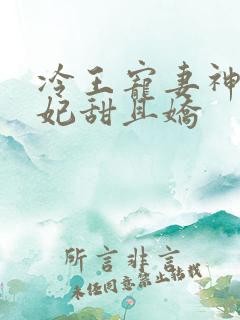 冷王寵妻神
妃甜且嬌
所言非言
未经同意禁止转载